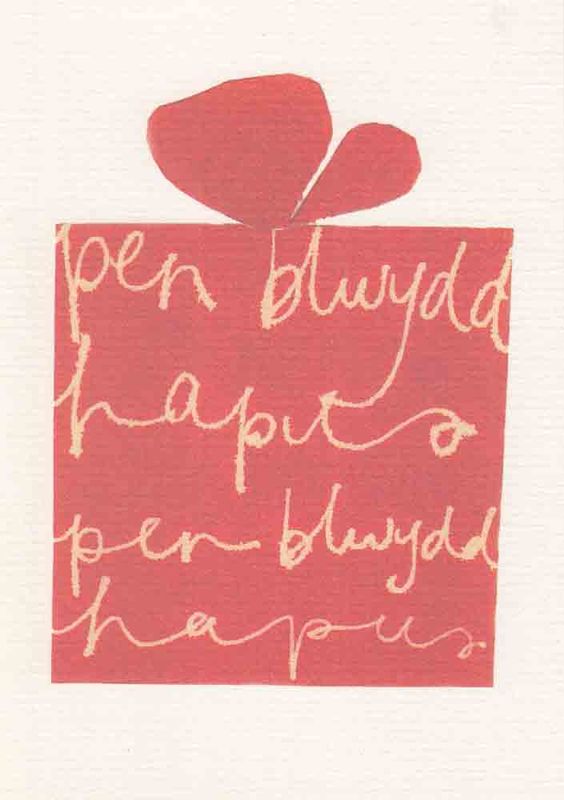 pen blwydd
hapus
pen blwydd
hapus